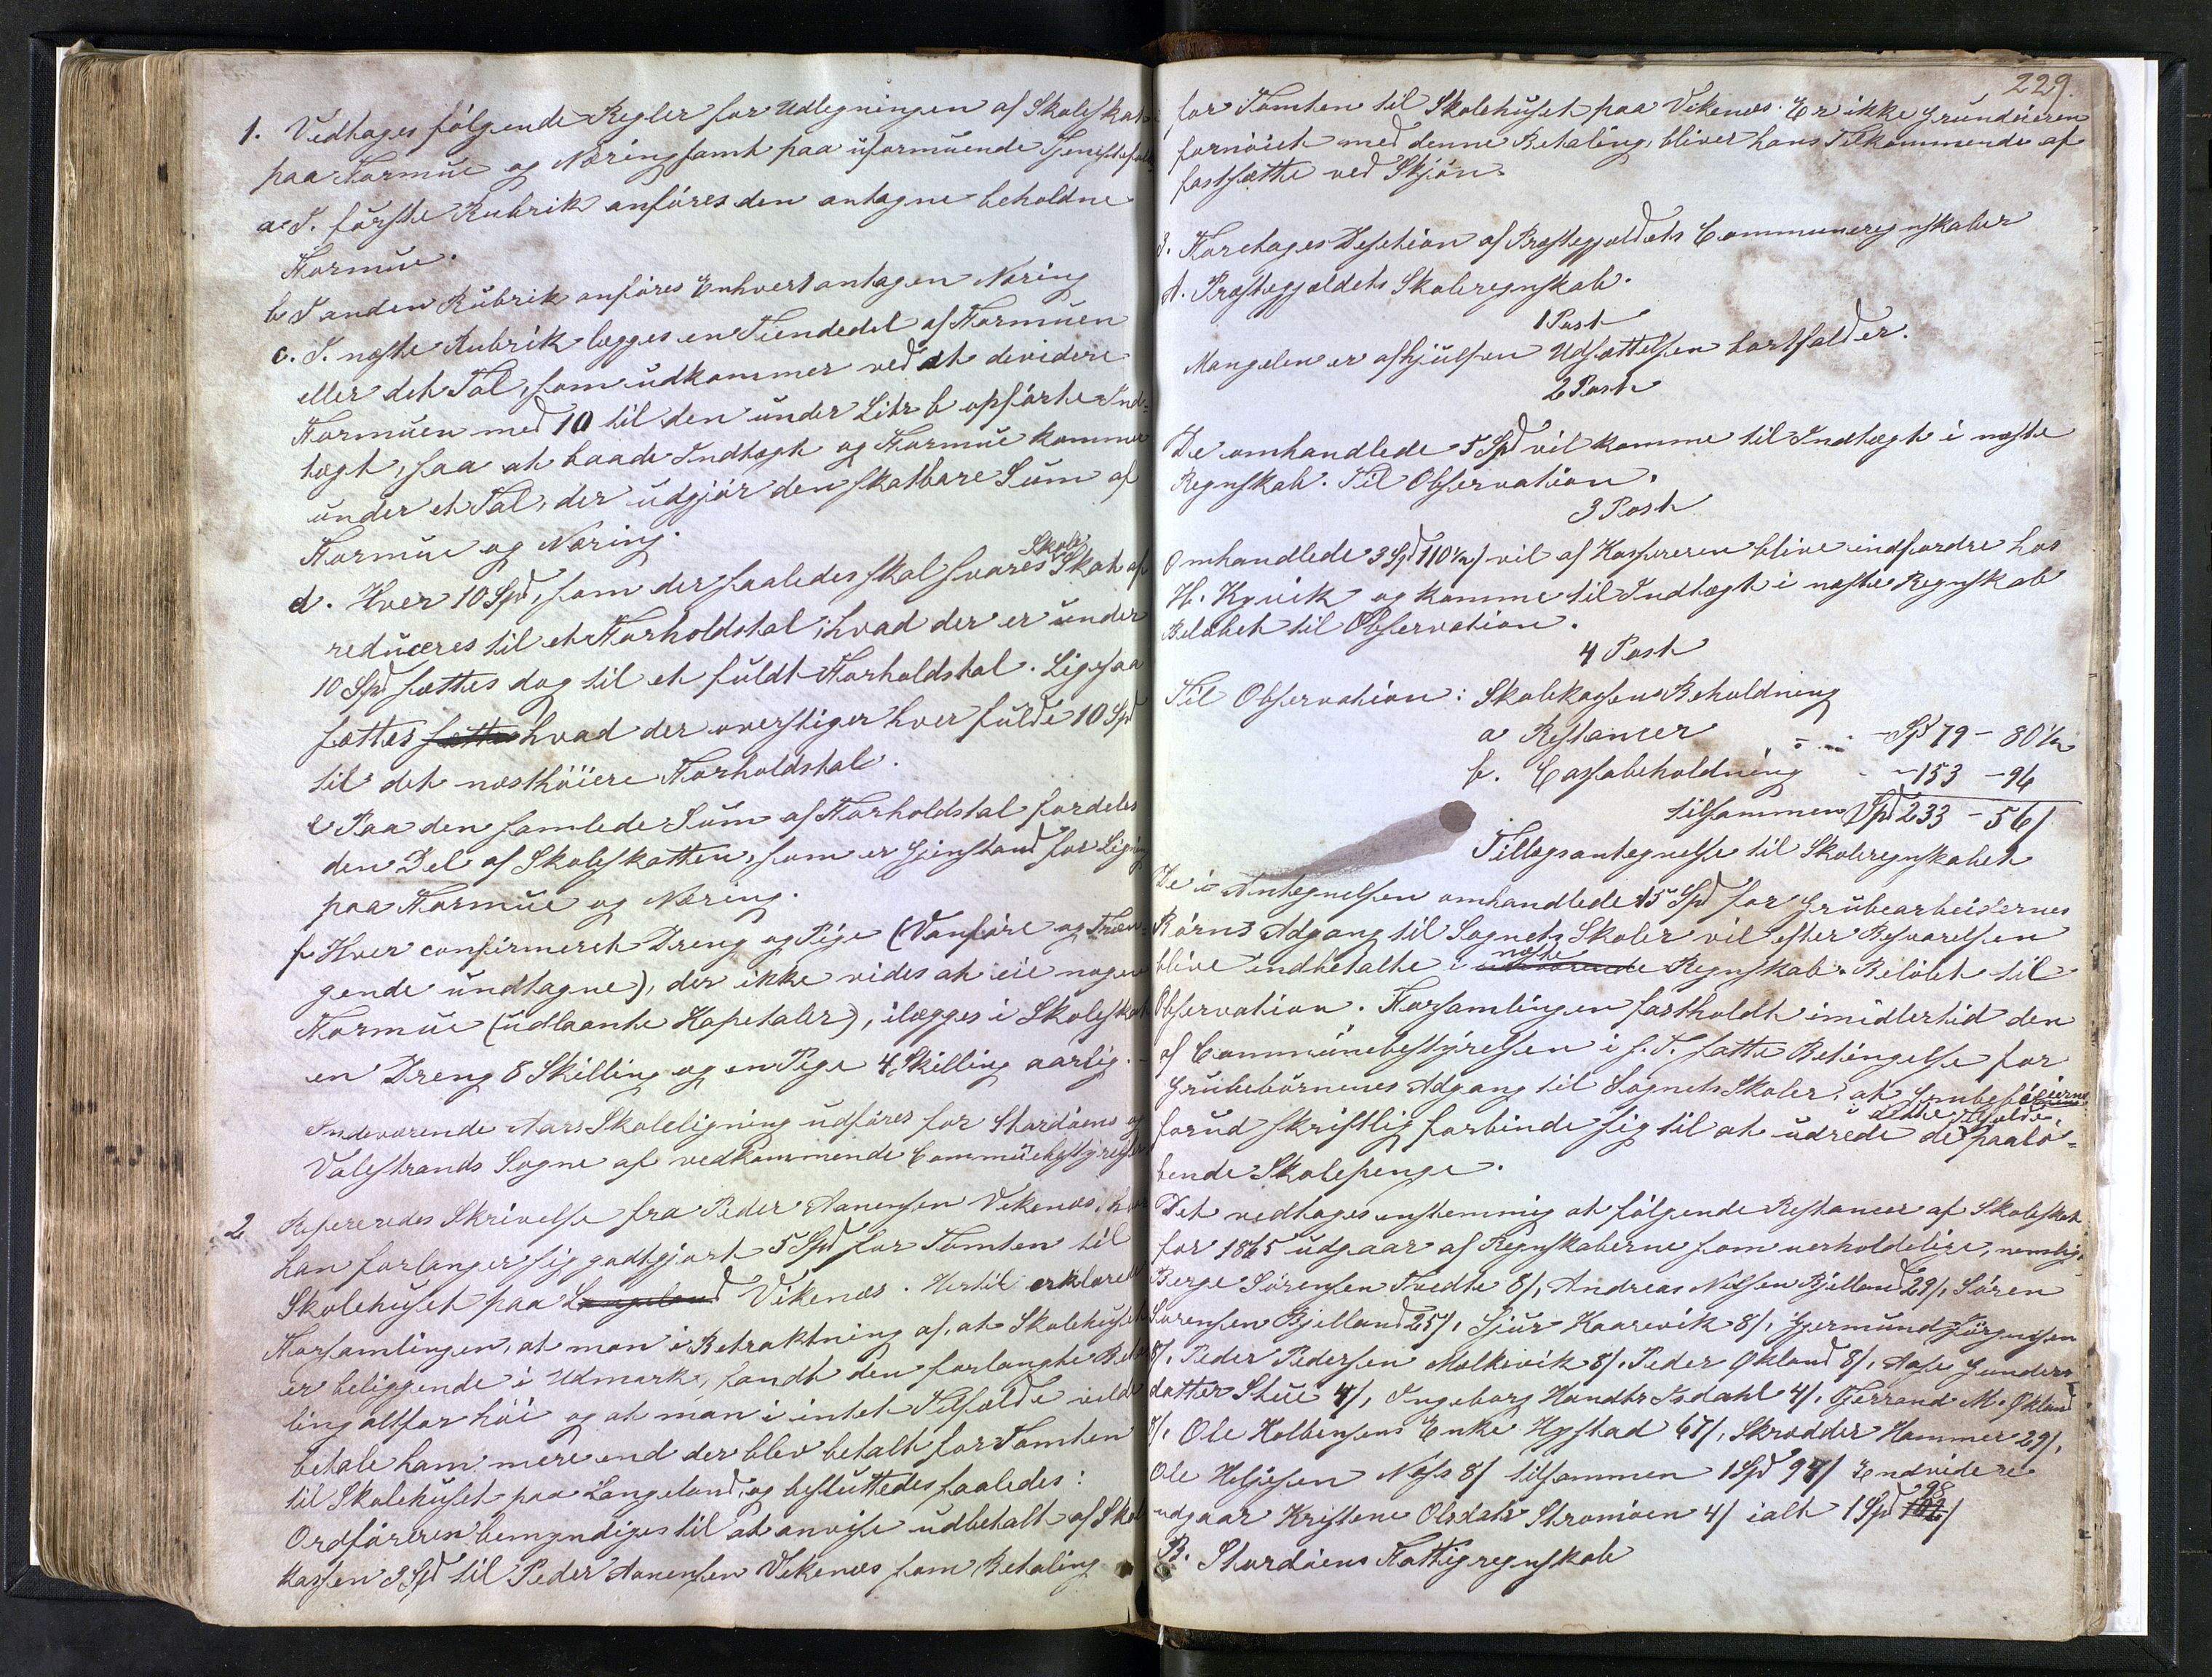 1. Vedtages følgende Regler for Udlegningen af Skoleskat
paa Formue og Næring samt paa uformuende Tjenestefolk
a. I. første Rubrik anføres den antagne beholdne
Formue.
b I anden Rubrik anføres Enhvers antagen Næring
c. I. næste Rubrik lægges en Tiendedel af Formuen
eller det Tal, som udkommer ved at devidere
Formuen med 10 til den under Litr b opførte Ind-
tægt, saa at baade Indtægt og Formue komme
under et Tal, der udgjør den skatbare Sum af
Formue og Næring.
d. Hver 10 Spd, som der saaledes skal svares Skole Skat af
reduceres til et Forholdstal; hvad der er under
10 Spd sættes dog til et fuldt Forholdstal. Ligesaa
sættes sættes hvad der overstiger hver fulde 10 Spd
til det næsthöiere Forholdstal.
e Paa den samlede Sum af Forholdstal fordeles
den Del af Skoleskatten, som er Gjenstand for Ligning
paa Formue og Næring.
f Hver confirmeret Dreng og Pige (Vanføre og Træn-
gende undtagne), der ikke vides at eie nogen
Formue (udlaante Kapetaler), ilægges i Skoleskat
en Dreng 8 Skilling og en Pige 4 Skilling aarlig.
Indeværende Aars Skoleligning udføres for Stordøens og
Valestrands Sogne af vedkommende Communebestyrelser
2 Refereredes Skrivelse fra Peder Aanensen Vikenæs, hvor
han forlanger sig godtgjort 5 Spd for Tomten til
Skolehuset paa Langeland Vikenæs. Hertil erklærede
Forsamlingen, at man i Betraktning af, at Skolehuset
er beliggende i Udmark, fandt den forlangte Beta
ling altfor höi og at man i intet Tilfælde vilde
betale ham mere end der blev betalt for Tomten
til Skolehuset paa Langeland, og besluttedes saaledes:
Ordføreren bemyndiges til at anvise udbetalt af Skole
kassen 3 Spd til Peder Aanensen Vikenæs som Betaling
229.
for Tomten til Skolehuset paa Vikenæs. Er ikke Grundeieren
fornøiet med denne Betaling, bliver hans Tilkommende at
fastsætte ved Skjøn.
3. Foretages Desetion af Præstegjældets Communeregnskaber
A. Præstegjældets Skoleregnskab.
1 Post
Mangelen er afhjulpen Udsættelsen bortfalder.
2 Post
De omhandlede 5 Spd vil komme til Indtægt i næste
Regnskab. Til Observation.
3 Post
Omhandlede 3 Spd 110½ s vil af Kassereren blive indfordre hos
H. Kyvik og komme til Indtægt i næste Regnskab
Beløbet til Observation.
4 Post
Til Observation: Skolekassens Beholdning
a Restancer - Spd 79 - 80½
b. Cassabeholdning - 153 - 96
tilsammen Spd 233 - 56 s
Tillægsantegnelse til Skoleregnskabet
De i Antegnelsen omhandlede 15 Spd for Grubearbeidernes
Børns Adgang til Sognets Skoler vil efter Besvarelsen
blive indbetalte i næste Regnskab. Beløbet til
Observation. Forsamlingen fastholdt imidlertid den
af Communebestyrelsen i s. T. satte Betingelse for
Grubebørnenes Adgang til Sognets Skoler, at Grubeeierne
forud skriftlig forbinde sig til at udrede de i dette Tilfælde paalø-
bende Skolepenge.
Det vedtages enstemmig at følgende Restancer af Skoleskat
for 1865 udgaar af Regnskaberne som uerholdelige, nemlig
Berge Sørensen Tvedte 8 s, Andreas Nilsen Bjelland 29 s, Søren
Sørensen Bjelland 25 s, Sjur Kaarevik 8 s, Gjermund Jørgensen
8 s, Peder Pedersen Molkevik 8 s, Peder Økland 8 s, Aase Gunders
datter Stue 4 s, Ingeborg Handtr Isdahl 4 s, Tjerrand M. Økland
s, Ole Holbensens Enke Hystad 67 s, Skrædder Hammer 29 s,
Ole Heljesen Næss 8 s tilsammen 1 Spd 94 s Endvidere
udgaar Kristene Olsdatr Stromøen 4 s ialt 1 Spd 98 s
B. Stordøens Fattigregnskab